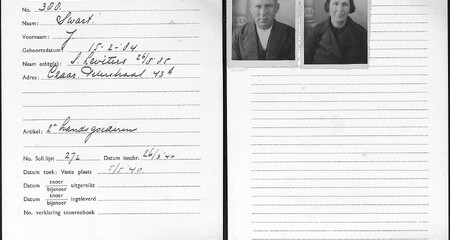 No. 300.
Naam: Swart.
Voornaam: J
Geboortedatum: 15-2-04
Naam echtg(e): S. Leviters 26/5 05
Adres: 43 h
Artikel: 2e handsgoederen
No. Soll.lijst 272 Datum inschr. 26/3 '40
Datum toek: Vaste plaats 5/5 40.
Datum snoer bijsnoer uitgereikt
Datum snoer bijsnoer ingeleverd
No. verklaring snoerenboek